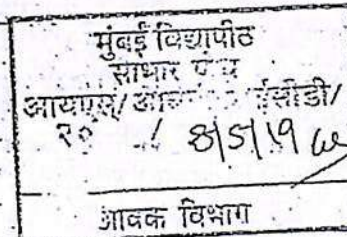 मुंबई विद्यापीठ
साभार पोच
आयएल/
२० / 8/5/19
आवक विभाग